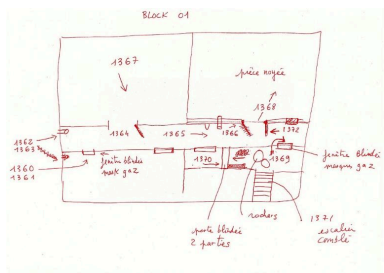 BLOCK 01
1367
pièce noyée
1368
1364
1365
1366
1372
1362
1363
1360
1361
fenêtre blindée
mark gaz
1370
1369
fenêtre blindée
masque gaz
porte blindée
2 parties
rochers
1371
escalier
comblé